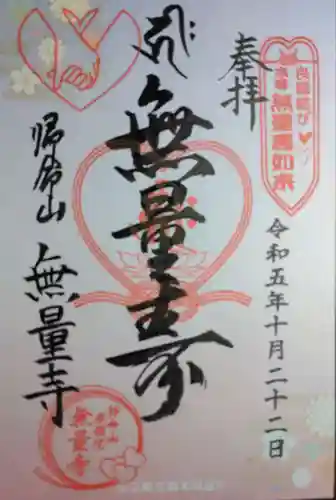 奉拝
良縁結び
無量寿如来
令和五年十月二十二日
無量寿
帰命山
無量寺
無量寺